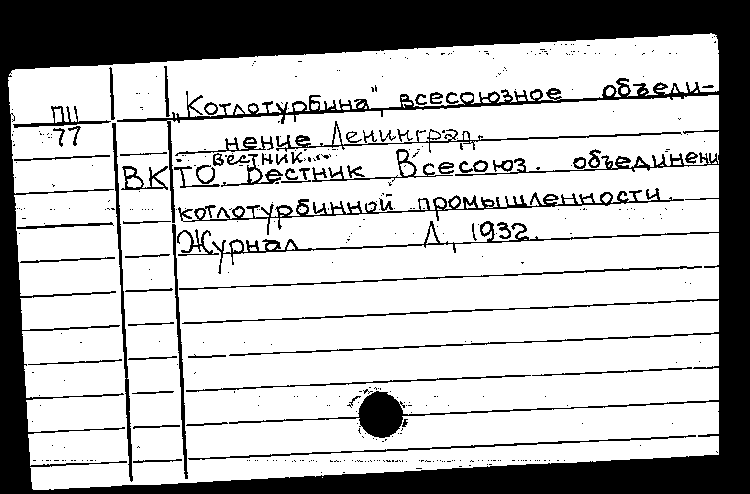 „Котлотурбина", всесоюзное объеди-
ПШ
77
нение. Ленинград.
Вестник...
ВКТО. Вестник Всесоюз. объединени
котлотурбинной промышленности.
Журнал Л., 1932.